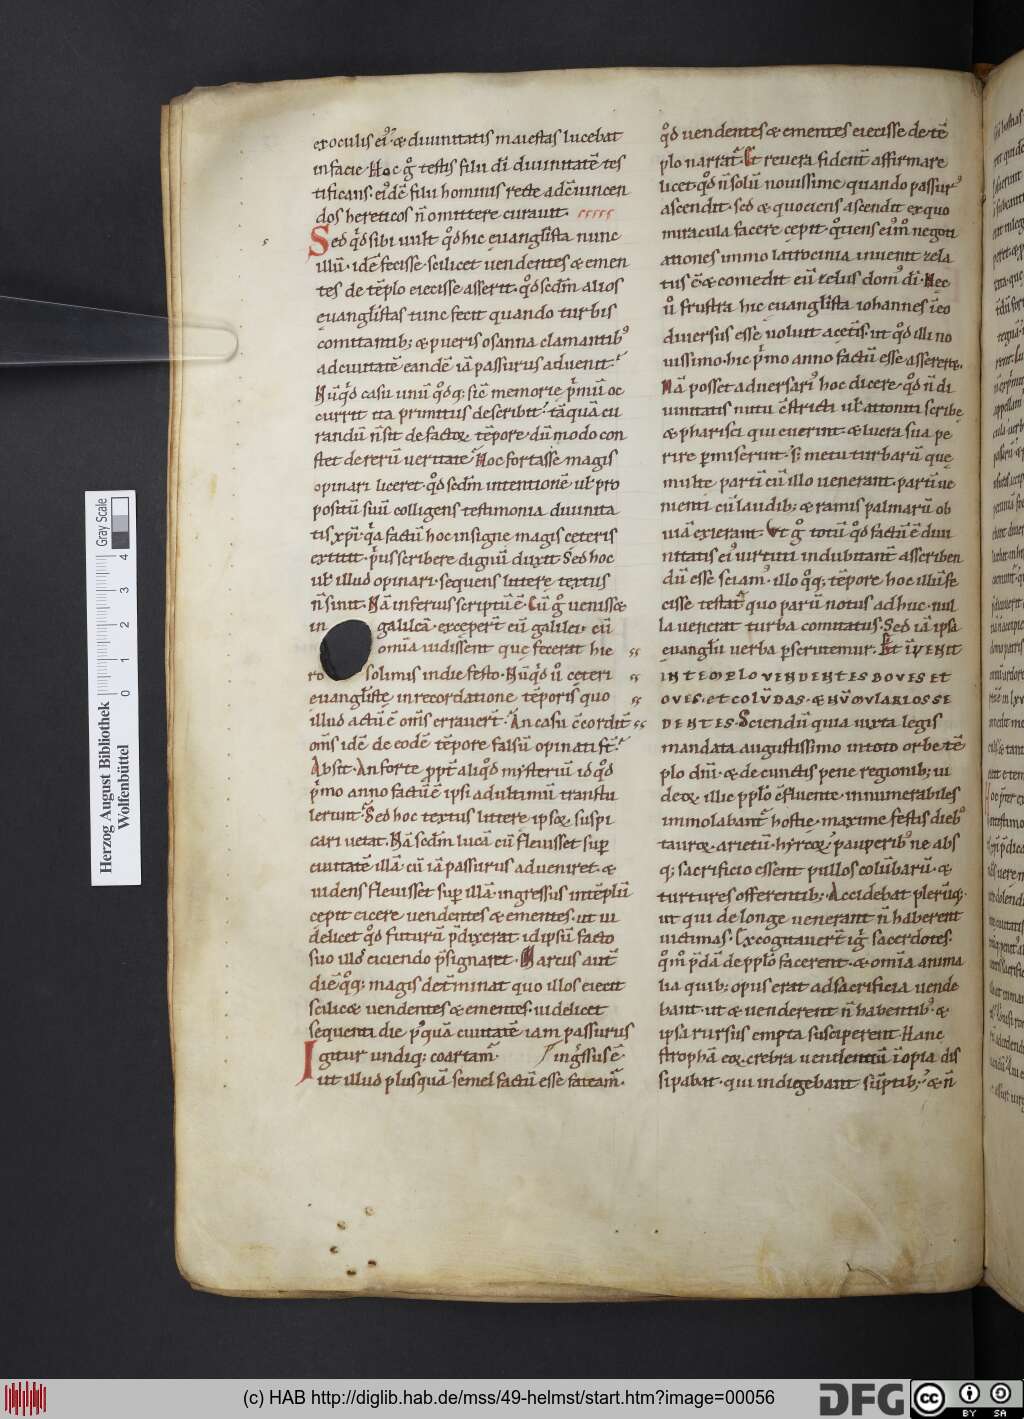 ex oculis ei᷒ ⁊ diuinitatis maiestas lucebat
in facie. Hoc g̊ testis filii di̅ diuinitate̅ tes
tificans. ei᷒de̅ filii hominis recte ad c̅uincen
dos hereticos n̅ omittere curauit.
Sed qͥd sibi uult qd̊ hic euangl̅ista nunc
illu̅. ide̅ fecisse. scilicet uendentes & emen
tes de te̅plo eiecisse asserit. qd̊ scd̅m alios
euangl̅istas tunc fecit quando turbis
comitantib; & pueris osanna clamantib᷒
ad ciuitate̅ eande̅ ia̅ passurus aduenit.
Nu̅qͥd casu unu̅ qd̊q; sic̅ memorie pͥmu̅ oc
currit ita primitus describit. ta̅qua̅ cu
randu̅ n̅ sit de factoꝝ te̅pore. du̅modo con
stet de reru̅ ueritate. Hoc fortasse magis
opinari liceret. qd̊ scd̅m intentione̅ ul̅ pro
positu̅ suu̅ colligens testimonia diuinita
tis xp̅i. qͥa factu̅ hoc insigne magis ceteris
extitit. pͥus scribere dignu̅ duxit. Sed hoc
ul̅ illud opinari. sequens littere textus
n̅ sinit. Na̅ inferius scriptu̅ e̅. Cu̅ g̊ uenisset
in galilea̅. exceper̅t eu̅ galilei. cu̅
omia̅ uidissent que fecerat hie
ro solimis in die festo. Nu̅qͥd u̅ ceteri
euangl̅iste in recordatione te̅poris quo
illud actu̅ e̅ om̅s errauer̅t. An casu c̅cordit̅
om̅s ide̅ de eode̅ te̅pore falsu̅ opinati st̅.
Absit. An forte ppt̅ aliqd̊ mysteriu̅ id qd̊
pͥmo anno factu̅ e̅ ipsi ad ultimu̅ transtu
lerunt. Sed hoc textus littere ipsoꝝ suspi
cari uetat. Na̅ scd̅m luca̅ cu̅ fleuisset sup̅
ciuitate̅ illa̅. cu̅ ia̅ passurus adueniret. &
uidens fleuisset sup̅ illa̅. ingressus in te̅plu̅
cepit eicere uendentes & ementes. ut ui
delicet qd̊ futuru̅ p̅dixerat. id ipsu̅ facto
suo illos eiciendo p̅signaret. Marcus aut̅
die̅ qq̊; magis det̅minat quo illos eiecit
scilicet uendentes & ementes. uidelicet
sequenti die pqua̅ ciuitate̅ iam passurus
Igitur undiq; coartam̅. ing̅ssus e̅.
ut illud plusqua̅ semel factu̅ esse fateam̅.
qd̊ uendentes & ementes eiecisse de te̅
plo narrat̅. Et reuera fident̅ affirmare
licet. qd̊ n̅ solu̅ nouissime quando passur᷒
ascendit. sed & quociens ascendit ex quo
miracula facere cepit. qͦtiens ei᷒m̅ negoti
ationes immo latrocinia inuenit zela
tus e̅. & comedit eu̅ zelus dom᷒ di̅. Nec
u̅ frustra hic euangl̅ista iohannes i̅co
diuersus esse uoluit a cet̅is. ut qd̊ illi no
uissimo. hic pͥmo anno factu̅ esse assereret.
Na̅ posset aduersari᷒ hoc dicere. qd̊ n̅ di
uinitatis nutu c̅stricti ul̅ attoniti scribe
& pharisei qui euerint. & lucra sua pe
rire p̅miserint. s; metu turbaru̅ que
multe parti̅ cu̅ illo uenerant. parti̅ ue
nienti cu̅ laudib; & ramis palmaru̅ ob
uia̅ exierant. Ut g̊ totu̅ qd̊ factu̅ e̅ diui
nitatis ei᷒ uirtuti indubitant̅ asscriben
du̅ esse sciam᷒. illo qq̊; te̅pore hoc illu̅ fe
cisse testat̅ quo paru̅ notus adhuc. nul
la uenerat turba comitatus. Sed ia̅ ipsa
euangl̅ii uerba p̅scrutemur. Et i̅venit
IN TEMPLO VENDENTES BOVES ET
OVES. ET COLU̅BAS. & NU̅MVLARIOS SE
DENTES. Sciendu̅ quia iuxta legis
mandata augustissimo in toto orbe te̅
plo dn̅i. & de cunctis pene regionib; iu
deoꝝ illic pplo̅ c̅fluente. innumerabiles
immolabant̅ hostie. maxime festis dieb᷒
tauroꝝ. arietu̅. hyrcoꝝ. pauperib᷒ ne abs
q; sacrificio essent pullos colu̅baru̅. &
turtures offerentib;. Accidebat pleru̅q;.
ut qui de longe uenerant n̅ haberent
uictimas. Excogitauer̅t ig̅ sacerdotes.
qm̊ p̅da̅ de pplo̅ facerent. & omia̅ anima
lia quib; opus erat ad sacrificia uende
bant. ut & uenderent n̅ habentib᷒. &
ipsa rursus empta susciperent. Hanc
stropha̅ eoꝝ crebra uenientiu̅ i̅opia dis
sipabat. qui indigebant su̅ptib;. & n̅
Herzog August Bibliothek
Wolfenbüttel
Gray Scale
0 1 2 3 4
(c) HAB http://diglib.hab.de/mss/49-helmst/start.htm?image=00056
DFG
cc BY SA